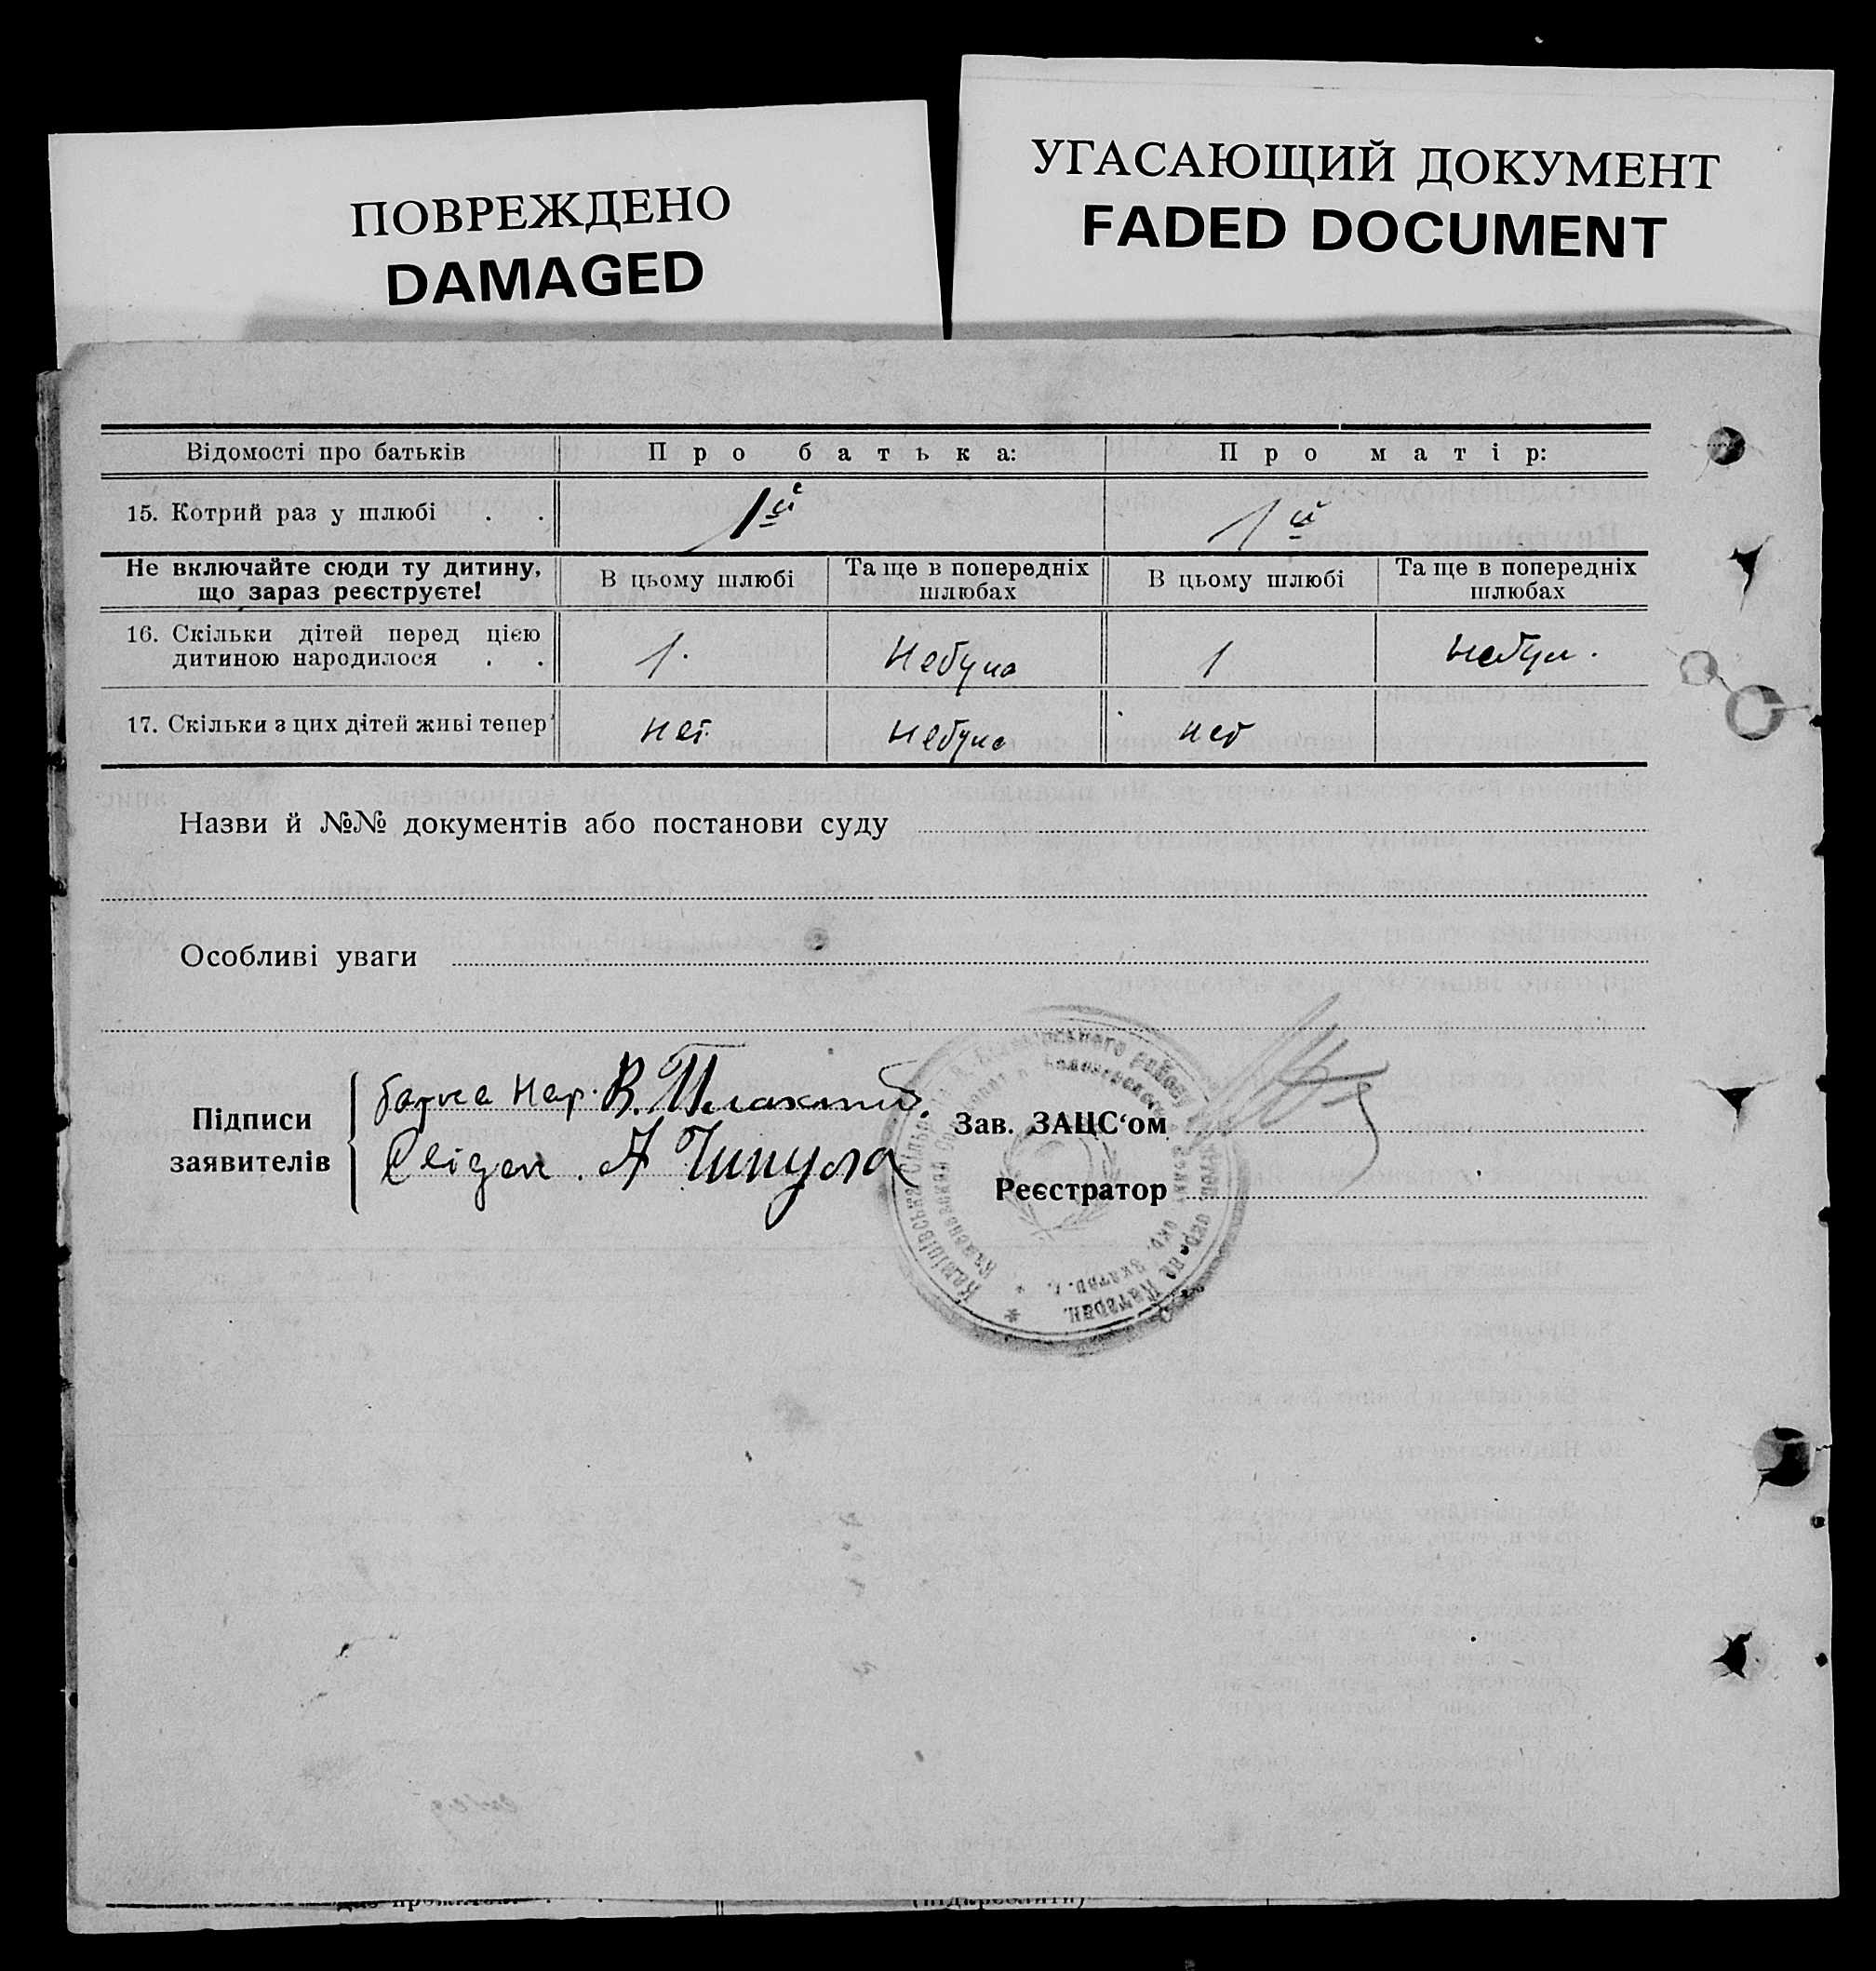 ПОВРЕЖДЕНО
DAMAGED
УГАСАЮЩИЙ ДОКУМЕНТ
FADED DOCUMENT
Відомості про батьків Про батька: Про матір:
15. Котрий раз у шлюбі . . 1й 1й
Не включайте сюди ту дитину, що зараз реєструєте! В цьому шлюбі Та ще в попередніх шлюбах В цьому шлюбі Та ще в попередніх шлюбах
16. Скільки дітей перед цією
дитиною народилося . . 1. Небуло 1 Небул.
17. Скільки з цих дітей живі тепер нет Небуло нет
Назви й №№ документів або постанови суду
Особливі уваги
Підписи
заявителів
В.
А
Зав. ЗАЦС‘ом
Реєстратор